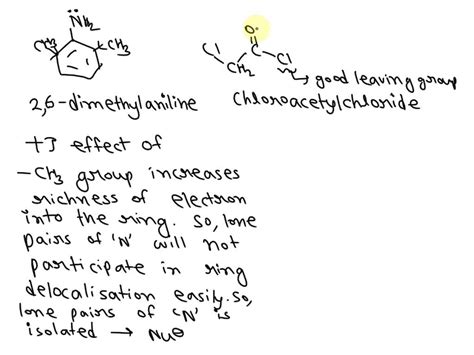 N̈H₂
CH₃ CH₃
2,6-dimethylaniline
O
Cl C Cl
CH₂
good leaving group
Chloroacetylchloride
+I effect of
-CH₃ group increases
richness of electron
into the ring. So, lone
pairs of 'N' will not
participate in ring
delocalisation easily. So,
lone pairs of 'N' is
isolated → Nu⊖